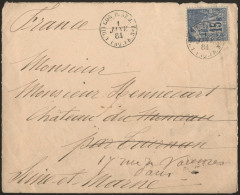 France
1
JUIL
81
15
81
Monsieur
Monsieur Hennecart
Château du
par Tournan
17 rue de Varennes
Paris
Seine et Marne